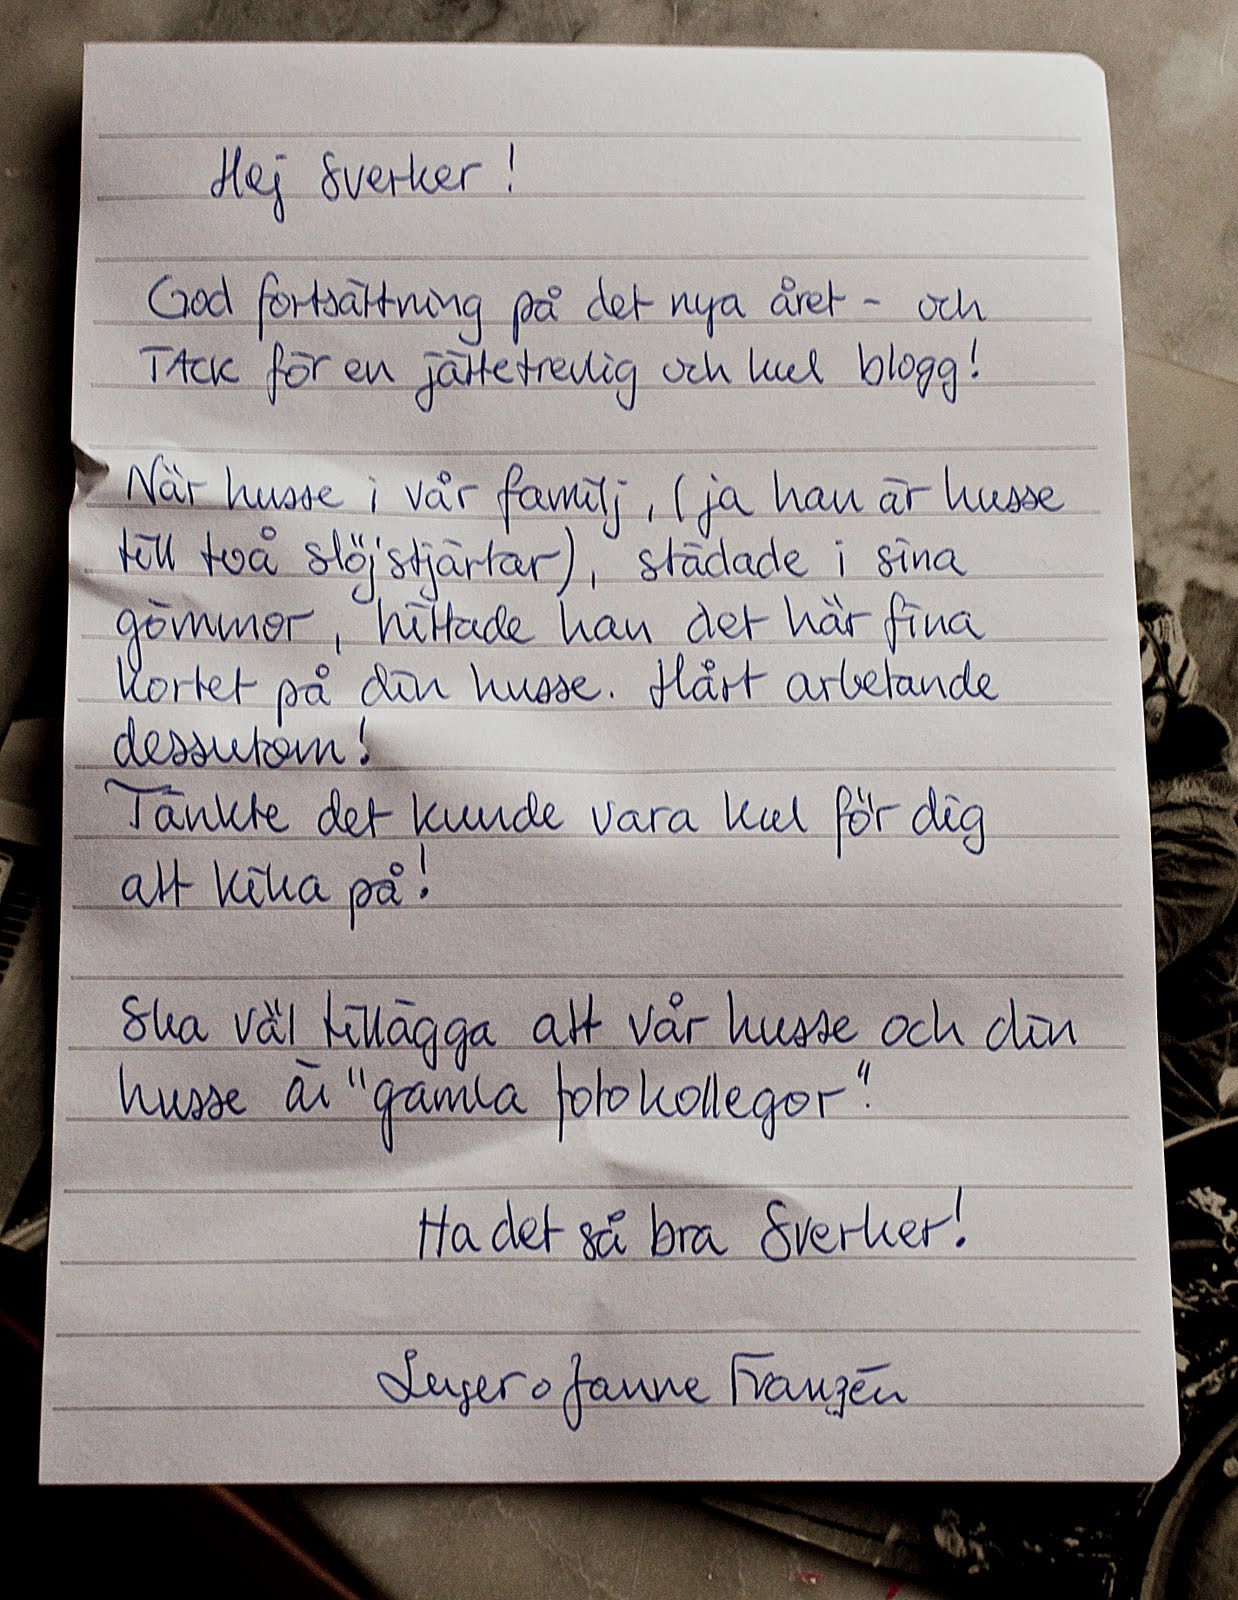 Hej Sverker!
God fortsättning på det nya året - och
TACK för en jättetrevlig och kul blogg!
När husse i vår familj, (ja han är husse
till två slöjstjärtar), städade i sina
gömmor, hittade han det här fina
kortet på din husse. Hårt arbetande
dessutom!
Tänkte det kunde vara kul för dig
att kika på!
Ska väl tillägga att vår husse och din
husse är "gamla fotokollegor".
Ha det så bra Sverker!
o Janne Franzén